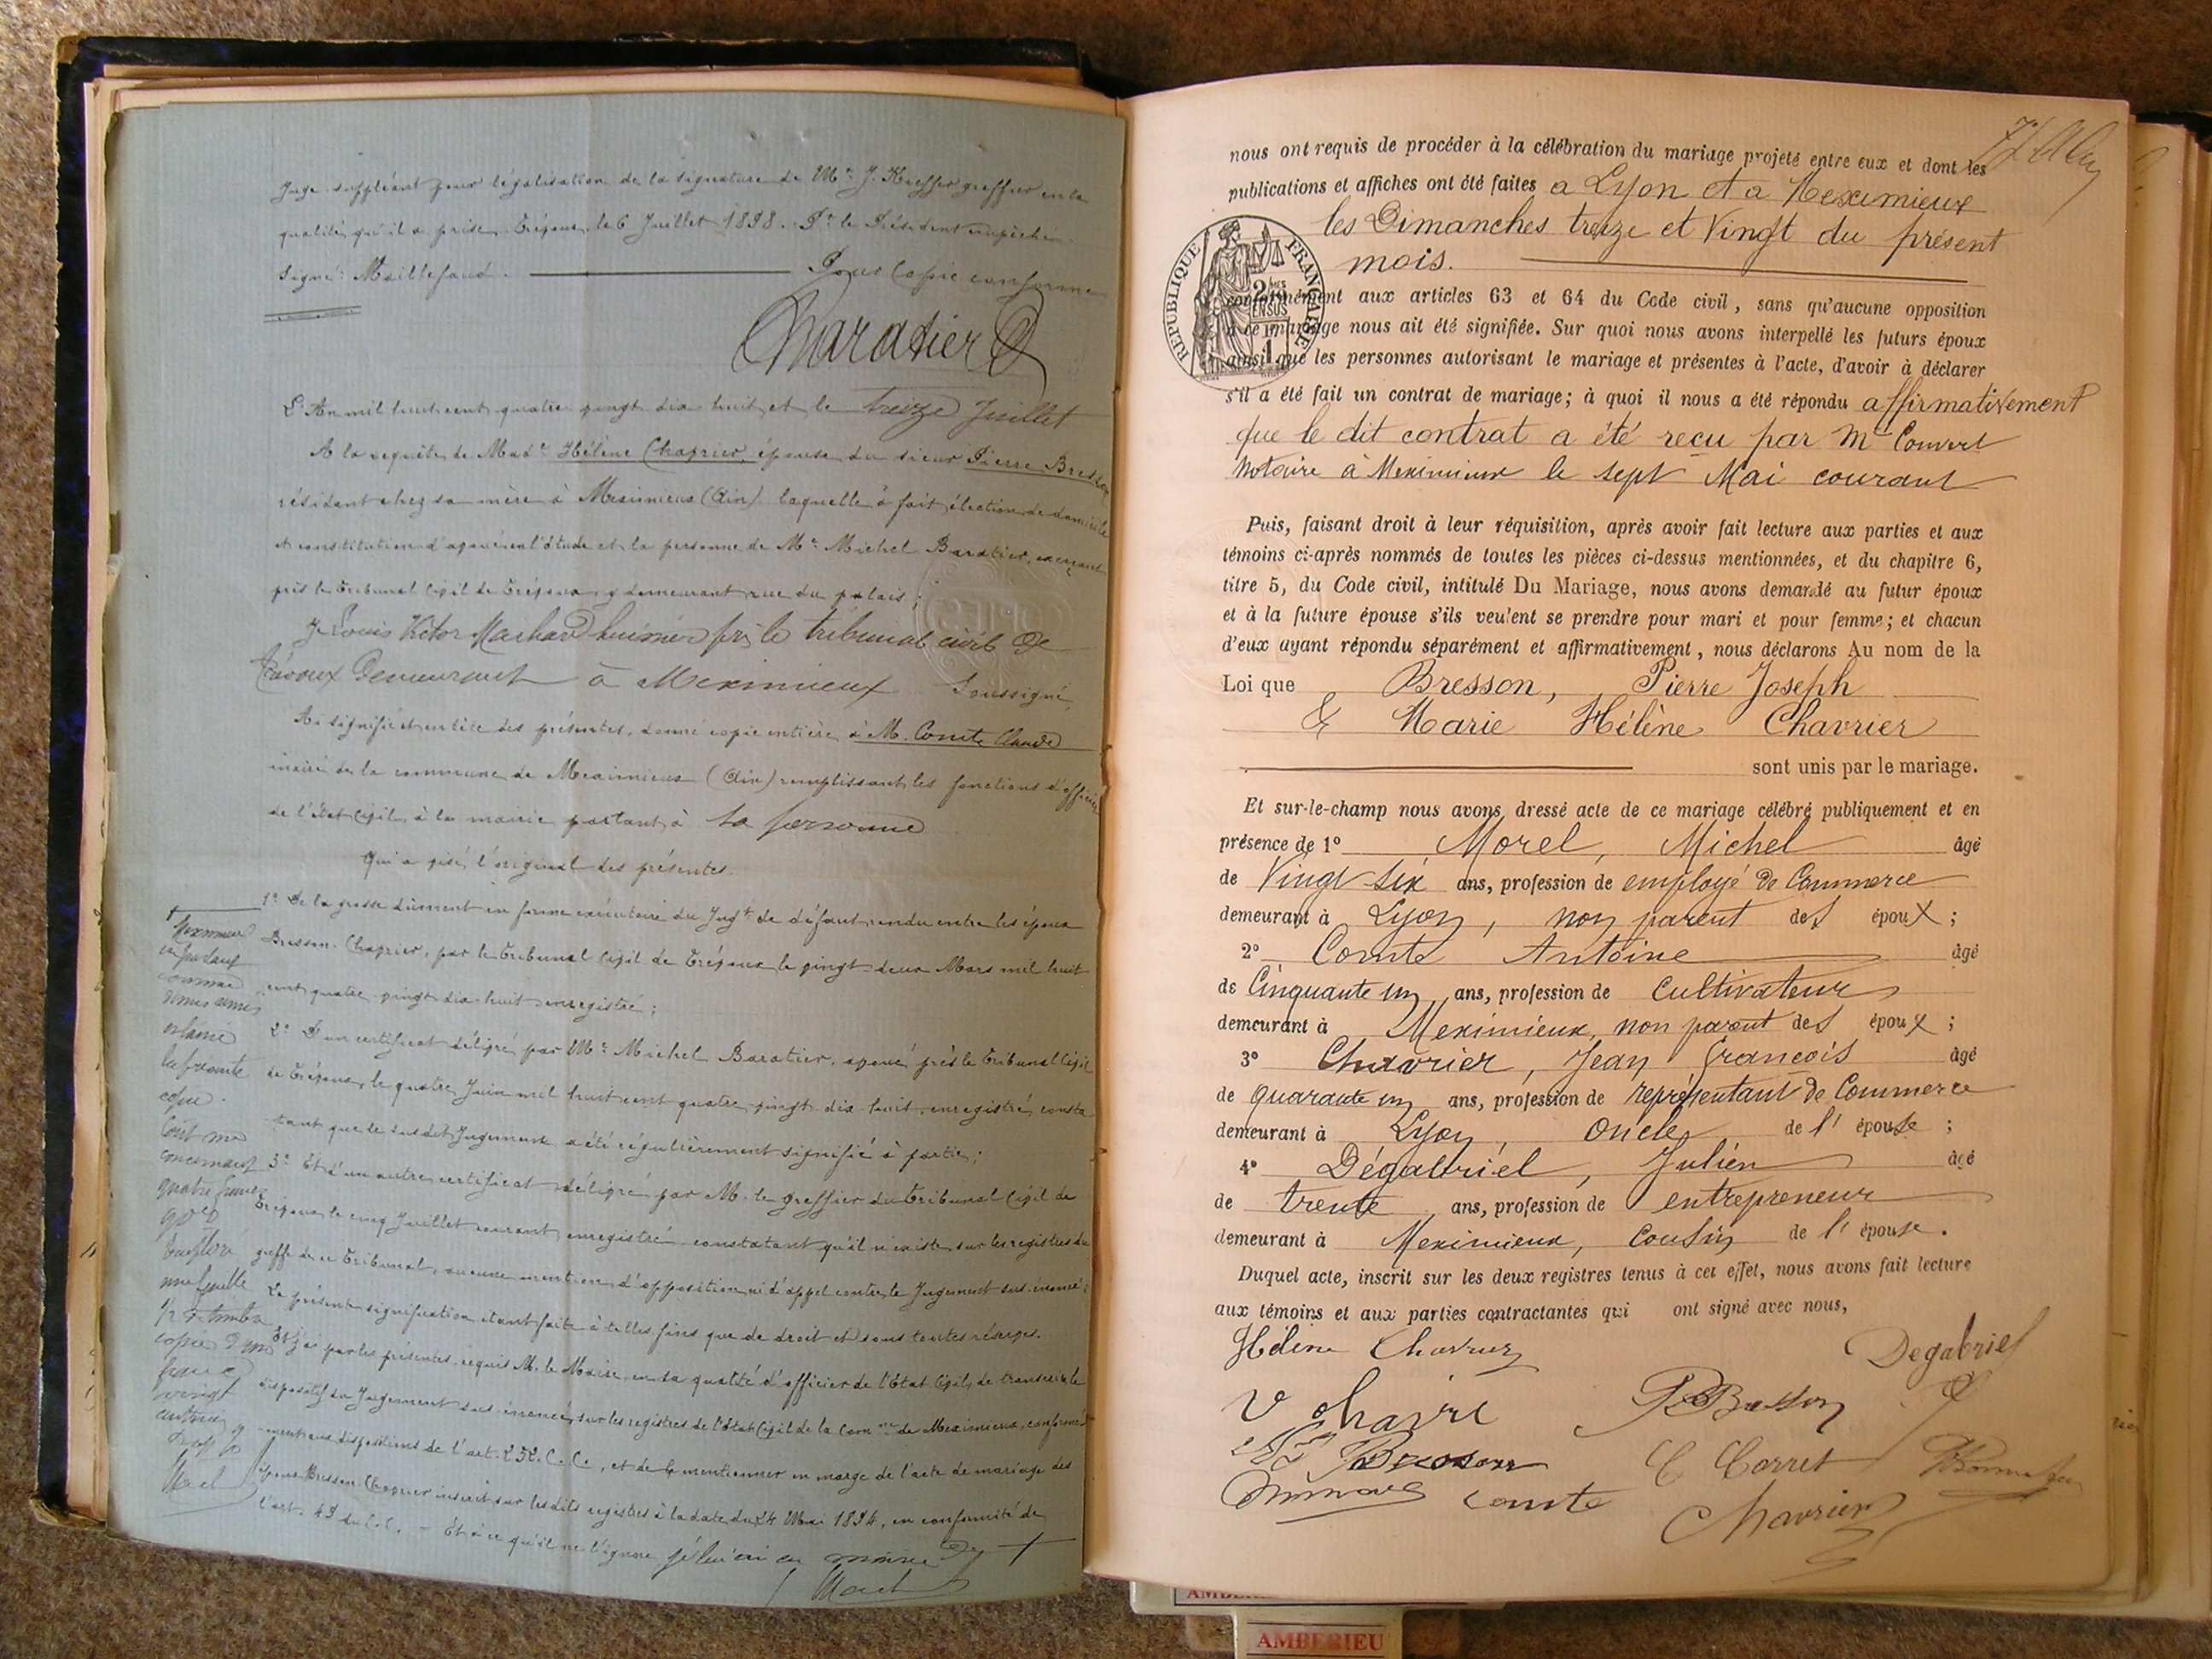 Juge suppléant pour légalisation de la signature de Mr J. greffier en la
qualité qu'il a prise. Trévoux, le 6 Juillet 1898. Pr le Président empêché.
Signé: Maillefaud. Pour Copie conforme
Baratier
L'An mil huit cent quatre vingt dix huit et le treize Juillet
A la requête de Made Hélène Chavrier, épouse du sieur Pierre Bresson
résidant chez sa mère à Meximieux (Ain) laquelle a fait élection de domicile
et constitution d'avoué en l'étude et la personne de Me Michel Baratier, exerçant
près le Tribunal Civil de Trévoux y demeurant rue du palais;
Je Louis Victor huissier près le tribunal civil de
Trévoux Demeurant à Meximieux Soussigné
Ai signifié et en tête des présentes, donné copie entière à M. Comte Claude
maire de la commune de Meximieux (Ain) remplissant les fonctions d'officier
de l'état Civil, à la mairie parlant à Sa personne
Qui a visé l'original des présentes.
1° De la grosse dûment en forme exécutoire du Jugt de défaut rendu entre les époux
Bresson-Chavrier, par le Tribunal Civil de Trévoux le vingt deux Mars mil huit
cent quatre-vingt-dix-huit enregistré;
2° D'un certificat délivré par Me Michel Baratier, avoué près le Tribunal Civil
de Trévoux, le quatre Juin mil huit cent quatre-vingt-dix-huit, enregistré, consta
tant que le susdit Jugement a été régulièrement signifié à partie;
3° Et d'un autre certificat délivré par M. le greffier du Tribunal Civil de
Trévoux le cinq Juillet courant enregistré constatant qu'il n'existe sur les registres du
greffe de ce Tribunal, aucune mention d'opposition ni d'appel contre le Jugement sus-énoncé;
La présente signification étant faite à telles fins que de droit et sous toutes réserves.
Et j'ai par les présentes requis M. le Maire en sa qualité d'officier de l'Etat Civil, de transcrire le
dispositif du Jugement sus-énoncé, sur les registres de l'Etat Civil de la Comne de Meximieux, conformé
ment aux dispositions de l'art. 252. C. C., et de le mentionner en marge de l'acte de mariage des
époux Bresson-Chavrier inscrit sur les dits registres à la date du 24 Mai 1894, en conformité de
l'art. 49 du C.C. — Et à ce qu'il ne l'ignore
la présente
copie.
Coût
concernant
quatre francs
Emploi
une feuille
copies
franc
vingt
nous ont requis de procéder à la célébration du mariage projeté entre eux et dont les
publications et affiches ont été faites a Lyon et a Meximieux
les Dimanches treize et Vingt du présent
mois.
RÉPUBLIQUE FRANÇAISE
conformément aux articles 63 et 64 du Code civil, sans qu'aucune opposition
à ce mariage nous ait été signifiée. Sur quoi nous avons interpellé les futurs époux
ainsi que les personnes autorisant le mariage et présentes à l'acte, d'avoir à déclarer
s'il a été fait un contrat de mariage; à quoi il nous a été répondu affirmativement
que le dit contrat a été reçu par Me Convert
Notaire à Meximieux le sept Mai courant
Puis, faisant droit à leur réquisition, après avoir fait lecture aux parties et aux
témoins ci-après nommés de toutes les pièces ci-dessus mentionnées, et du chapitre 6,
titre 5, du Code civil, intitulé Du Mariage, nous avons demandé au futur époux
et à la future épouse s'ils veulent se prendre pour mari et pour femme; et chacun
d'eux ayant répondu séparément et affirmativement, nous déclarons Au nom de la
Loi que Bresson, Pierre Joseph
& Marie Hélène Chavrier
sont unis par le mariage.
Et sur-le-champ nous avons dressé acte de ce mariage célébré publiquement et en
présence de 1° Morel, Michel âgé
de Vingt six ans, profession de employé de Commerce
demeurant à Lyon, non parent des époux;
2° Comte Antoine âgé
de Cinquante un ans, profession de Cultivateur
demeurant à Meximieux, non parent des époux;
3° Chavrier, Jean François âgé
de quarante un ans, profession de représentant de Commerce
demeurant à Lyon, oncle de l'épouse;
4° Dégabriel, Julien âgé
de trente ans, profession de entrepreneur
demeurant à Meximieux, Cousin de l'épouse.
Duquel acte, inscrit sur les deux registres tenus à cet effet, nous avons fait lecture
aux témoins et aux parties contractantes qui ont signé avec nous,
Hélène Chavrier Degabriel
P Bresson
Bresson C Carret
Comte Chavrier
AMBERIEU